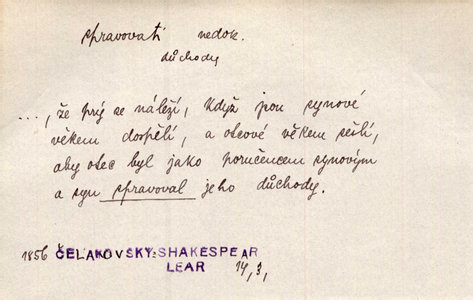 spravovati nedok.
důchody
..., že prý se náleží, když jsou synové
věkem dospělí, a otcové věkem sešlí,
aby otec byl jako poručencem synovým
a syn spravoval jeho důchody.
1856 ČELAKOVSKY-SHAKESPEAR
LEAR 14,3,